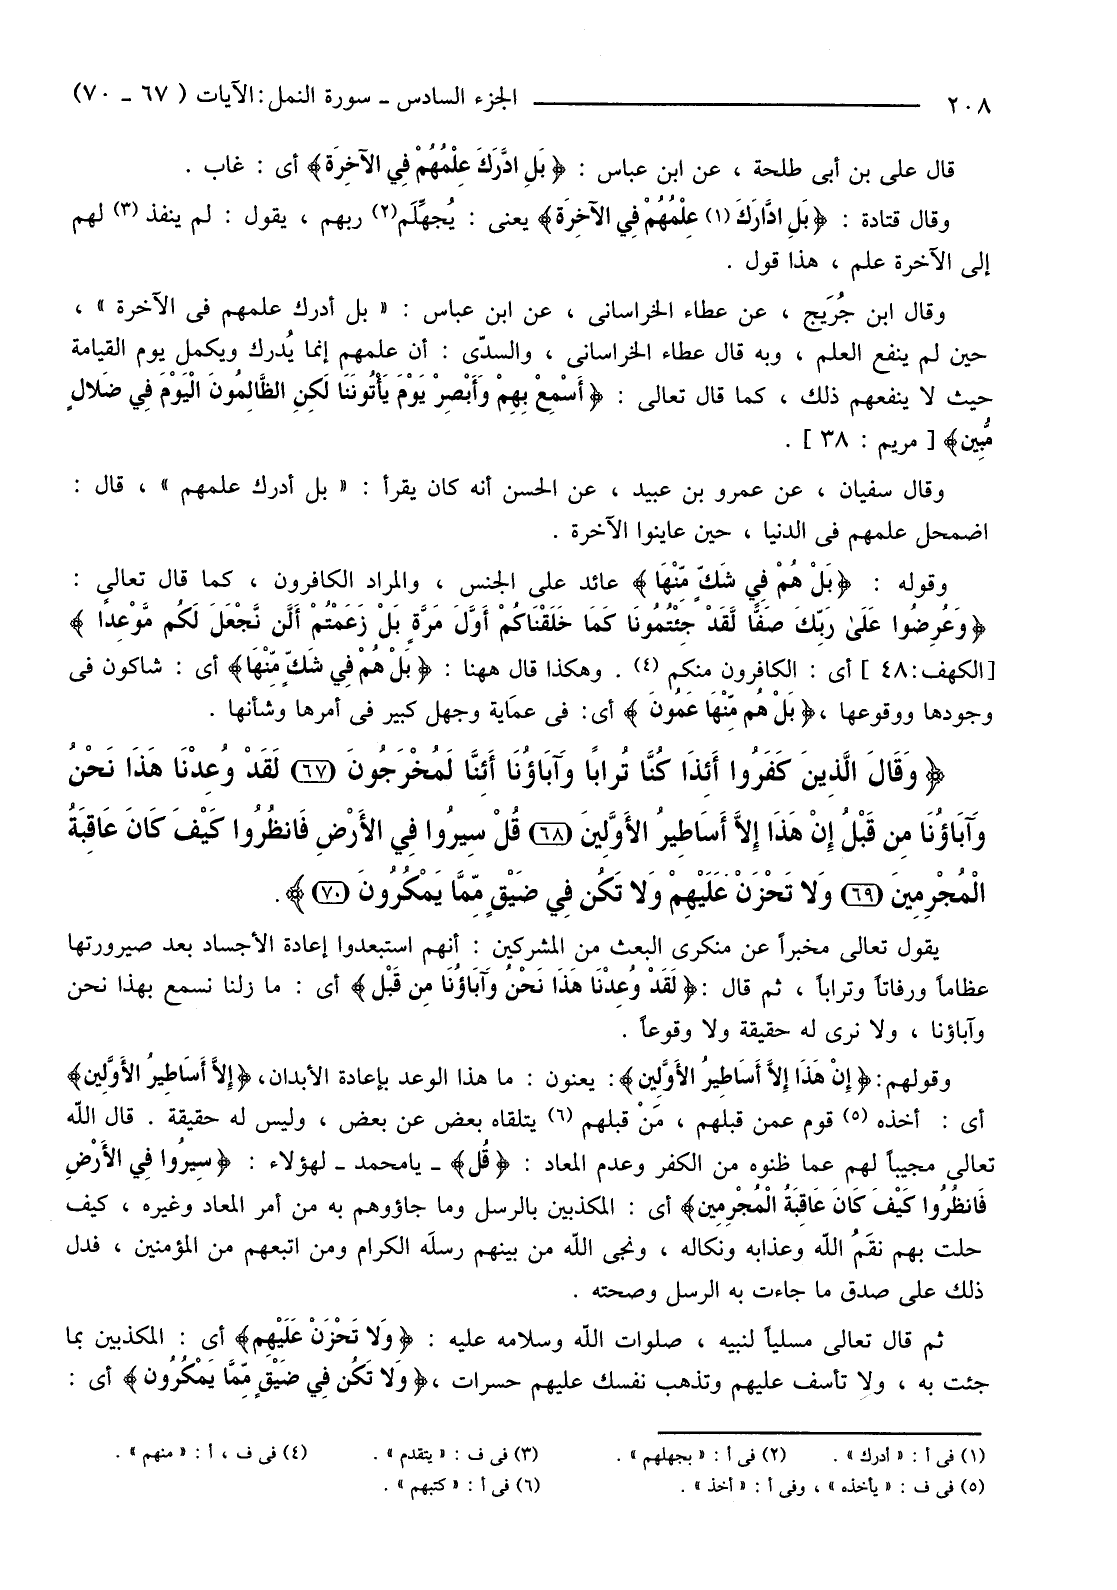 ٢٠٨ الجزء السادس ـ سورة النمل : الآيات ( ٦٧ ـ ٧٠)
قال على بن أبى طلحة ، عن ابن عباس : ﴿ بَلِ ادَّرَكَ عِلْمُهُمْ فِي الآخِرَة﴾ أى : غاب .
وقال قتادة : ﴿ بَلِ ادَّارَكَ (١) عِلْمُهُمْ فِي الآخِرَة﴾ يعنى : يُجهِّلَم(٢) ربهم ، يقول : لم ينفذ (٣) لهم
إلى الآخرة علم ، هذا قول .
وقال ابن جُرَيَج ، عن عطاء الخراسانى ، عن ابن عباس : « بل أدرك علمهم فى الآخرة » ،
حين لم ينفع العلم ، وبه قال عطاء الخراسانى ، والسدّى : أن علمهم إنما يُدرك ويكمل يوم القيامة
حيث لا ينفعهم ذلك ، كما قال تعالى : ﴿ أَسْمِعْ بِهِمْ وَأَبْصِرْ يَوْمَ يَأْتُونَنَا لَكِنِ الظَّالِمُونَ الْيَوْمَ فِي ضَلالٍ
مُّبِين﴾ [ مريم : ٣٨ ] .
وقال سفيان ، عن عمرو بن عبيد ، عن الحسن أنه كان يقرأ : « بل أدرك علمهم » ، قال :
اضمحل علمهم فى الدنيا ، حين عاينوا الآخرة .
وقوله : ﴿ بَلْ هُمْ فِي شَكٍّ مِّنْهَا ﴾ عائد على الجنس ، والمراد الكافرون ، كما قال تعالى :
﴿ وَعُرِضُوا عَلَىٰ رَبِّكَ صَفًّا لَّقَدْ جِئْتُمُونَا كَمَا خَلَقْنَاكُمْ أَوَّلَ مَرَّةٍ بَلْ زَعَمْتُمْ أَلَّن نَّجْعَلَ لَكُم مَّوْعِدًا ﴾
[الكهف:٤٨ ] أى : الكافرون منكم (٤) . وهكذا قال ههنا : ﴿ بَلْ هُمْ فِي شَكٍّ مِّنْهَا﴾ أى : شاكون فى
وجودها ووقوعها ،﴿ بَلْ هُم مِّنْهَا عَمُونَ ﴾ أى: فى عمَاية وجهل كبير فى أمرها وشأنها .
﴿ وَقَالَ الَّذِينَ كَفَرُوا أَئِذَا كُنَّا تُرَاباً وَآبَاؤُنَا أَئِنَّا لَمُخْرَجُونَ (٦٧) لَقَدْ وُعِدْنَا هَذَا نَحْنُ
وَآبَاؤُنَا مِن قَبْلُ إِنْ هَذَا إِلاَّ أَسَاطِيرُ الأَوَّلِينَ (٦٨) قُلْ سِيرُوا فِي الأَرْضِ فَانظُرُوا كَيْفَ كَانَ عَاقِبَةُ
الْمُجْرِمِينَ (٦٩) وَلا تَحْزَنْ عَلَيْهِمْ وَلا تَكُن فِي ضَيْقٍ مِّمَّا يَمْكُرُونَ (٧٠) ﴾ .
يقول تعالى مخبراً عن منكرى البعث من المشركين : أنهم استبعدوا إعادة الأجساد بعد صيرورتها
عظاماً ورفاتاً وتراباً ، ثم قال :﴿ لَقَدْ وُعِدْنَا هَذَا نَحْنُ وَآبَاؤُنَا مِن قَبْل ﴾ أى : ما زلنا نسمع بهذا نحن
وآباؤنا ، ولا نرى له حقيقة ولا وقوعاً .
وقولهم:﴿ إِنْ هَذَا إِلاَّ أَسَاطِيرُ الأَوَّلِين﴾: يعنون : ما هذا الوعد بإعادة الأبدان، ﴿إِلاَّ أَسَاطِيرُ الأَوَّلِين﴾
أى : أخذه (٥) قوم عمن قبلهم ، مَنْ قبلهم (٦) يتلقاه بعض عن بعض ، وليس له حقيقة . قال الله
تعالى مجيباً لهم عما ظنوه من الكفر وعدم المعاد : ﴿ قُل﴾ ـ يامحمد ـ لهؤلاء : ﴿ سِيرُوا فِي الأَرْضِ
فَانظُرُوا كَيْفَ كَانَ عَاقِبَةُ الْمُجْرِمِين﴾ أى : المكذبين بالرسل وما جاؤوهم به من أمر المعاد وغيره ، كيف
حلت بهم نقَمُ الله وعذابه ونكاله ، ونجى الله من بينهم رسلَه الكرام ومن اتبعهم من المؤمنين ، فدل
ذلك على صدق ما جاءت به الرسل وصحته .
ثم قال تعالى مسلياً لنبيه ، صلوات الله وسلامه عليه : ﴿ وَلا تَحْزَنْ عَلَيْهِم﴾ أى : المكذبين بما
جئت به ، ولا تأسف عليهم وتذهب نفسك عليهم حسرات ،﴿ وَلا تَكُن فِي ضَيْقٍ مِّمَّا يَمْكُرُون ﴾ أى :
(١) فى أ : « أدرك » . (٢) فى أ : « بجهلهم » . (٣) فى ف : « يتقدم » . (٤) فى ف ، أ : « منهم » .
(٥) فى ف : « يأخذه » ، وفى أ : « أخذ » . (٦) فى أ : « كتبهم » .